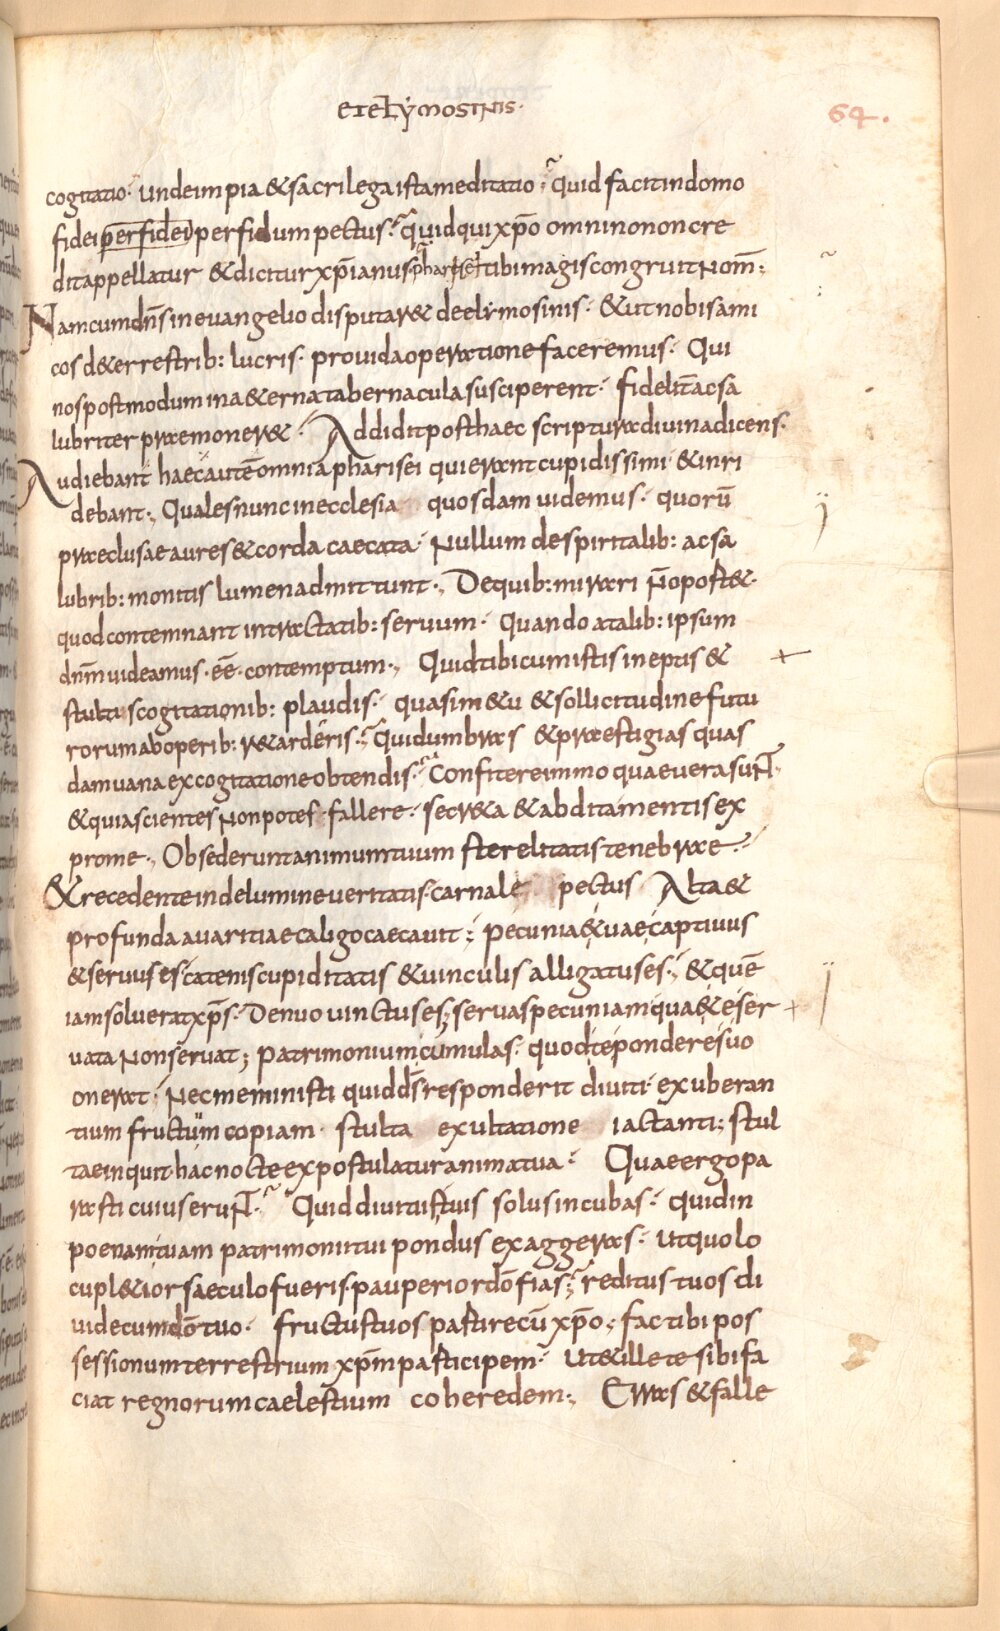 et elymosinis·
64.
cogitatio· unde impia & sacrilega ista meditatio· Quid facit in domo
fidei perfidei perfidum pectus· quid qui xp̄o omnino non cre
dit appellatur & dicitur xp̄ianus· tibi magis congruit nom̄;
Nam cum dn̄s in evangelio disputar& de elymosinis· & ut nobis ami
cos d& errestrib: lucris· provida operatione faceremus· Qui
nos postmodum in a&erna tabernacula susciperent· fidelit̄ ac sa
lubriter praemoner&· Addidit post haec scriptura divina dicens·
Audiebant haec autē omnia pharisei qui erant cupidissimi & inri
debant·, Quales nunc in ecclesia quosdam videmus· quorū
praeclusae aures & corda caecata· Nullum de spiritalib: ac sa
lubrib: monitis lumen admittunt·, De quib: mirari n̄ opost&·
quod contemnant in tractatib: servum· Quando a talib: ipsum
dn̄m videamus· eē· contemptum·, Quid tibi cum istis ineptis &
stultis cogitationib: plaudis· quasi m&u & sollicitudine futu
rorum ab operib: r&arderis· Quid umbras & praestigias quas
dam vana excogitatione obtendis· Confitere immo quae vera sunt·
& quia scientes non potes· fallere· secr&a & abdita mentis ex
prome·, Obsederunt animum tuum sterelitatis tenebrae·
& recedente inde lumine veritatis· carnale pectus Alta &
profunda avaritiae caligo caecavit; pecunia & uae captivus
& servus es catenis cupiditatis & vinculis alligatus es·, & quē
iam solverat xp̄s· Denuo vinctus es; servas pecuniam qua& e ser
vata non servat; patrimonium cumulas· quod te pondere suo
onerat· Nec meministi quid d̄s responderit diviti· exuberan
tium fructuum copiam· stulta exultatione iactanti; stul
tae inquit· hac nocte expostulatur anima tua· Quae ergo pa
rasti cuius erunt· Quid divitiis tuis solus incubas· Quid in
poenam tuam patrimonii tui pondus exaggeras· Ut quo lo
cupl&ior saeculo fueris· pauperior dō fias; reditus tuos di
vide cum dō tuo· fructus tuos partire cū xp̄o·; fac tibi pos
sessionum terrestrium xp̄m participem· Ut & ille te sibi fa
ciat regnorum caelestium coheredem·, Erras & falle